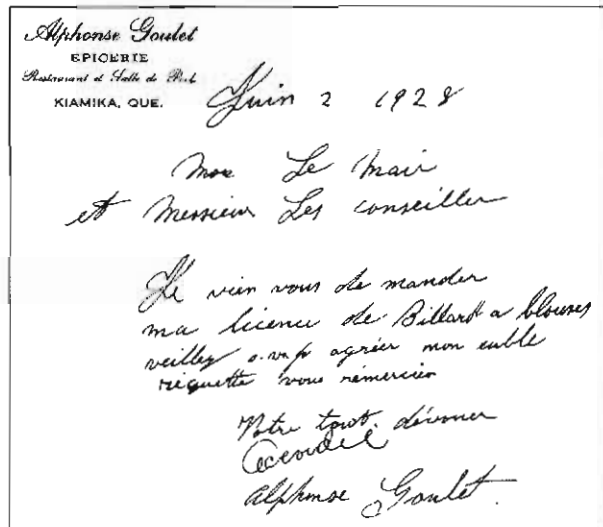 Alphonse Goulet
EPICERIE
Restaurant et Salle de Pool
KIAMIKA, QUE.
Juin 2 1928
Mon Le Mair
et Messieur Les conseiller
Je vien vous de mander
ma licence de Billard a blouses
veilley s.v.p agréer mon euble
riquette vous rémercier
Votre tout dévouer
Alphonse Goulet.